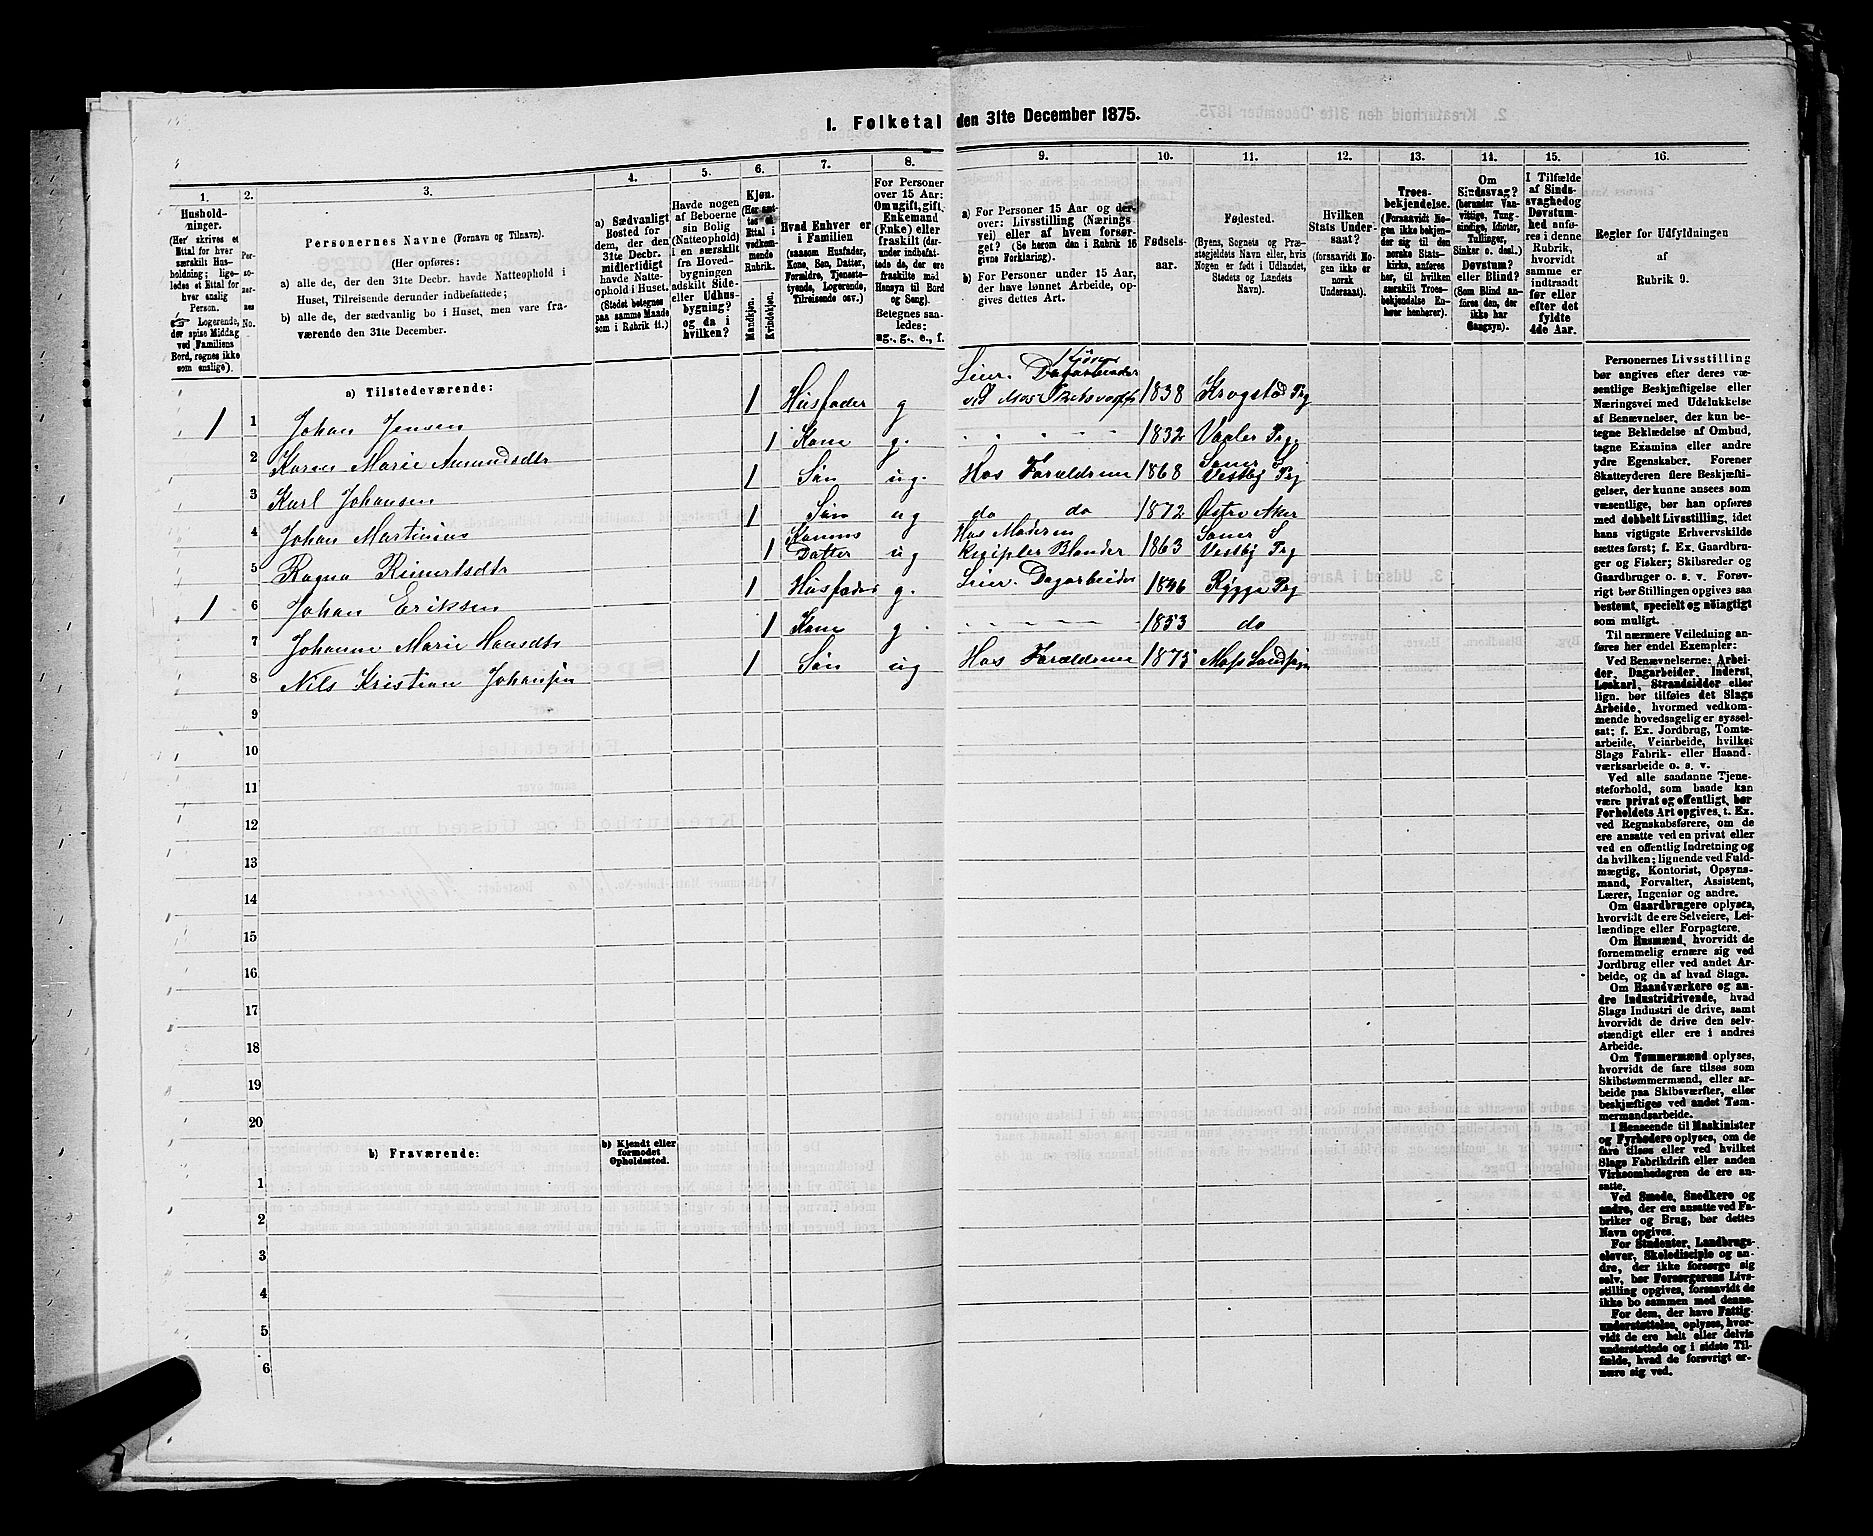 1. Folketal den 31te December 1875.
1.
Hushold-
ninger.
(Her skrives et
Ettal for hver
særskilt Hus-
holdning; lige-
ledes et Ettal for
hver enslig
Person.
Logerende,
der spise Middag
ved Familiens
Bord, regnes ikke
som enslige).
2.
Per-
so-
ner-
nes
No.
3.
Personernes Navne (Fornavn og Tilnavn).
(Her opføres:
a) alle de, der den 31te Decbr. havde Natteophold i
Huset, Tilreisende derunder indbefattede;
b) alle de, der sædvanlig bo i Huset, men vare fra-
værende den 31te December.
4.
a) Sædvanligt
Bosted for
dem, der den
31te Decbr.
midlertidigt
havde Natte-
ophold i Huset.
(Stedet betegnes
paa samme Maade
som i Rubrik 11.)
5.
Havde nogen
af Beboerne
sin Bolig
(Natteophold)
i en særskilt
fra Hoved-
bygningen
adskilt Side-
eller Udhus-
bygning?
og da i
hvilken?
6.
Kjøn.
(Her sæt-
tes et
Ettal i
vedkom-
mende
Rubrik.
Mandkjøn.
Kvindekjøn.
7.
Hvad Enhver er
i Familien
(saasom Husfader,
Kone, Søn, Datter,
Forældre, Tjeneste-
tyende, Logerende,
Tilreisende osv.)
8.
For Personer
over 15 Aar:
Om ugift, gift,
Enkemand
(Enke) eller
fraskilt (der-
under indbefat-
tede de, der ere
fraskilte med
Hensyn til Bord
og Seng).
Betegnes saa-
ledes:
ug., g., e., f.
9.
a) For Personer 15 Aar og der-
over: Livsstilling (Nærings
vei) eller af hvem forsør-
get? (Se herom den i Rubrik 16
givne Forklaring).
b) For Personer under 15 Aar,
der have lønnet Arbeide, op-
gives dettes Art.
10.
Fødsels-
aar.
11.
Fødested.
(Byens, Sognets og Præ-
stegjeldets Navn eller, hvis
Nogen er født i Udlandet,
Stedets og Landets
Navn).
12.
Hvilken
Stats Under-
saat?
(forsaavidt No-
gen ikke er
norsk
Undersaat).
13.
Troes-
bekjendelse.
(Forsaavidt No-
gen ikke bekjen-
der sig til den
norske Stats-
kirke, anføres
her, til hvilken
særskilt Troes-
bekjendelse En-
hver henhører).
14.
Om
Sindssvag?
(herunder Van-
vittige, Tung-
sindige, Idioter,
Tullinger,
Sinker o. desl.).
Døvstum?
eller Blind?
(Som Blind an-
føres den, der
ikke har
Gangsyn).
15.
I Tilfælde
af Sinds-
svaghed og
Døvstum-
hed anfø-
res i denne
Rubrik,
hvorvidt
samme er
indtraadt
før eller
efter det
fyldte
4de Aar.
16.
Regler for Udfyldningen
af
Rubrik 9.
a) Tilstedeværende:
1 1 Johan Jensen 1 Husfader g Leier. Dagarbeider 1838 Krogstad Prg
2 Karen Marie Amundsdtr 1 Kone g. 1832 Vaaler Prg
3 Karl Johansen 1 Søn ug. Hos Forældrene 1868 Soner S Vestby Prg
4 Johan Martinius 1 Søn ug do do 1872 Østre Aker
5 Ragna Reinertsdtr 1 Konens Datter ug Hos Moderen 1863 Soner S Vestby Prg
1 6 Johan Eriksen 1 Husfader g. Leier. Dagarbeider 1846 Rygge Prg
7 Johanne Marie Hansdtr 1 Kone g. 1853 do
8 Nils Kristian Johansen 1 Søn ug Hos Forældrene 1875 Moss Landsogn
9
10
11
12
13
14
15
16
17
18
19
20
b) Fraværende:
b) Kjendt eller
formodet
Opholdssted.
1
2
3
4
5
6
Personernes Livsstilling
bør angives efter deres væ-
sentlige Beskjæftigelse eller
Næringsvei med Udelukkelse
af Benævnelser, der kun be-
tegne Beklædelse af Ombud,
tagne Examina eller andre
ydre Egenskaber. Forener
Skatteyderen flere Beskjæfti-
gelser, der kunne ansees som
væsentlige, bør han opføres
med dobbelt Livsstilling, idet
hans vigtigste Erhvervskilde
sættes først; f. Ex. Gaardbru-
ger og Fisker; Skibsreder og
Gaardbruger o. s. v. Forøv-
rigt bør Stillingen opgives saa
bestemt, specielt og nøiagtigt
som muligt.
Til nærmere Veiledning an-
føres her endel Exempler:
Ved Benævnelserne: Arbei-
der, Dagarbeider, Inderst,
Løskarl, Strandsidder eller
lign. bør tilføies det Slags
Arbeide, hvormed vedkom-
mende hovedsagelig er syssel-
sat; f. Ex. Jordbrug, Tomte-
arbeide, Veiarbeide, hvilket
Slags Fabrik- eller Haand-
værksarbeide o. s. v.
Ved alle saadanne Tjene-
steforhold, som baade kan
være privat og offentligt, bør
Forholdets Art opgives, t. Ex.
ved Regnskabsførere, om de
ere ansatte ved en privat eller
ved en offentlig Indretning og
da hvilken; lignende ved Fuld-
mægtig, Kontorist, Opsyns-
mand, Forvalter, Assistent,
Lærer, Ingeniør og andre.
Om Gaardbrugere oplyses,
hvorvidt de ere Selveiere, Lei-
lændinge eller Forpagtere.
Om Husmænd, hvorvidt de
fornemmelig ernære sig ved
Jordbrug eller ved andet Ar-
beide, og da af hvad Slags.
Om Haandværkere og an-
dre Industridrivende, hvad
Slags Industri de drive, samt
hvorvidt de drive den selv-
stændigt eller ere i andres
Arbeide.
Om Tømmermænd oplyses,
hvorvidt de fare tilsøs som
Skibstømmermænd, eller ar-
beide paa Skibsværfter, eller
beskjæftiges ved andet Tøm-
mermandsarbeide.
I Henseende til Maskinister
og Fyrbødere oplyses, om de
fare tilsøs eller ved hvilket
Slags Fabrikdrift eller anden
Virksomhedsgren de ere an-
satte.
Ved Smede, Snedkere og
andre, der ere ansatte ved Fa-
briker og Brug, bør dettes
Navn opgives.
For Studenter, Landbrugs-
elever, Skoledisciple og an-
dre, der ikke forsørge sig
selv, bør Forsørgerens Livs-
stilling opgives, forsaavidt de
ikke bo sammen med denne.
For dem, der have Fattig-
understøttelse, oplyses, hvor-
vidt de ere helt eller delvis
understøttede og i sidste Til-
fælde, hvad de forøvrigt er-
nære sig ved.